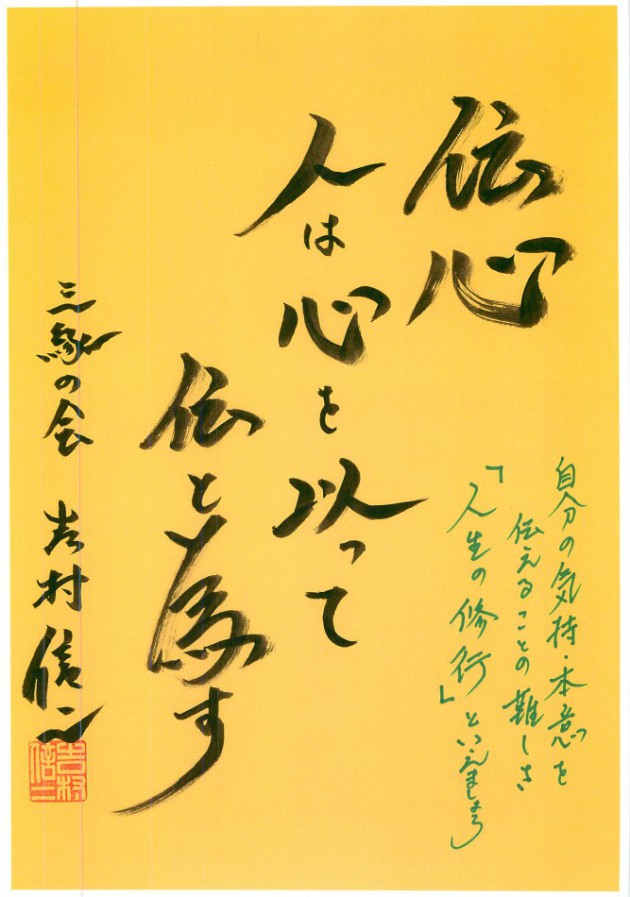 伝心
人は
心を以って
伝と為す
自分の気持・本意を
伝えることの難しさ
「人生の修行」といえましょう
三縁の会 吉村信二
吉村
信二